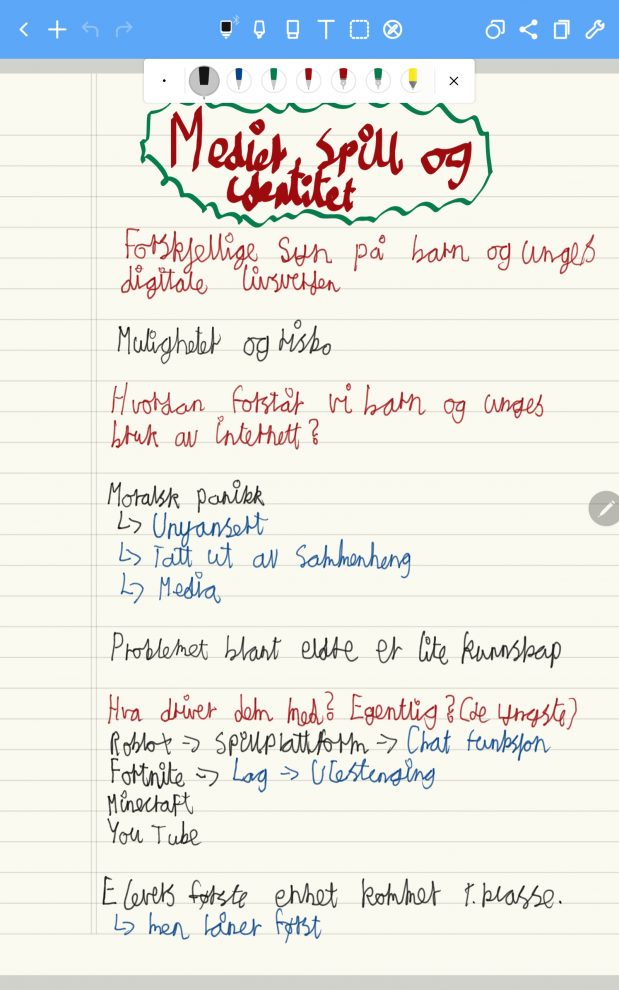 Medier, spill og
identitet
Forskjellige syn på barn og unges
digitale livsverden
Muligheter og risiko
Hvordan forstår vi barn og unges
bruk av internett?
Moralsk panikk
↳ Unyansert
↳ Tatt ut av sammenheng
↳ Media
Problemet blant eldre er lite kunnskap
Hva driver dem med? Egentlig? (de yngste)
Roblox → Spillplattform → Chat funksjon
Fortnite → Lag → Utestenging
Minecraft
YouTube
Elevers første enhet kommer 1. klasse.
↳ men låner først